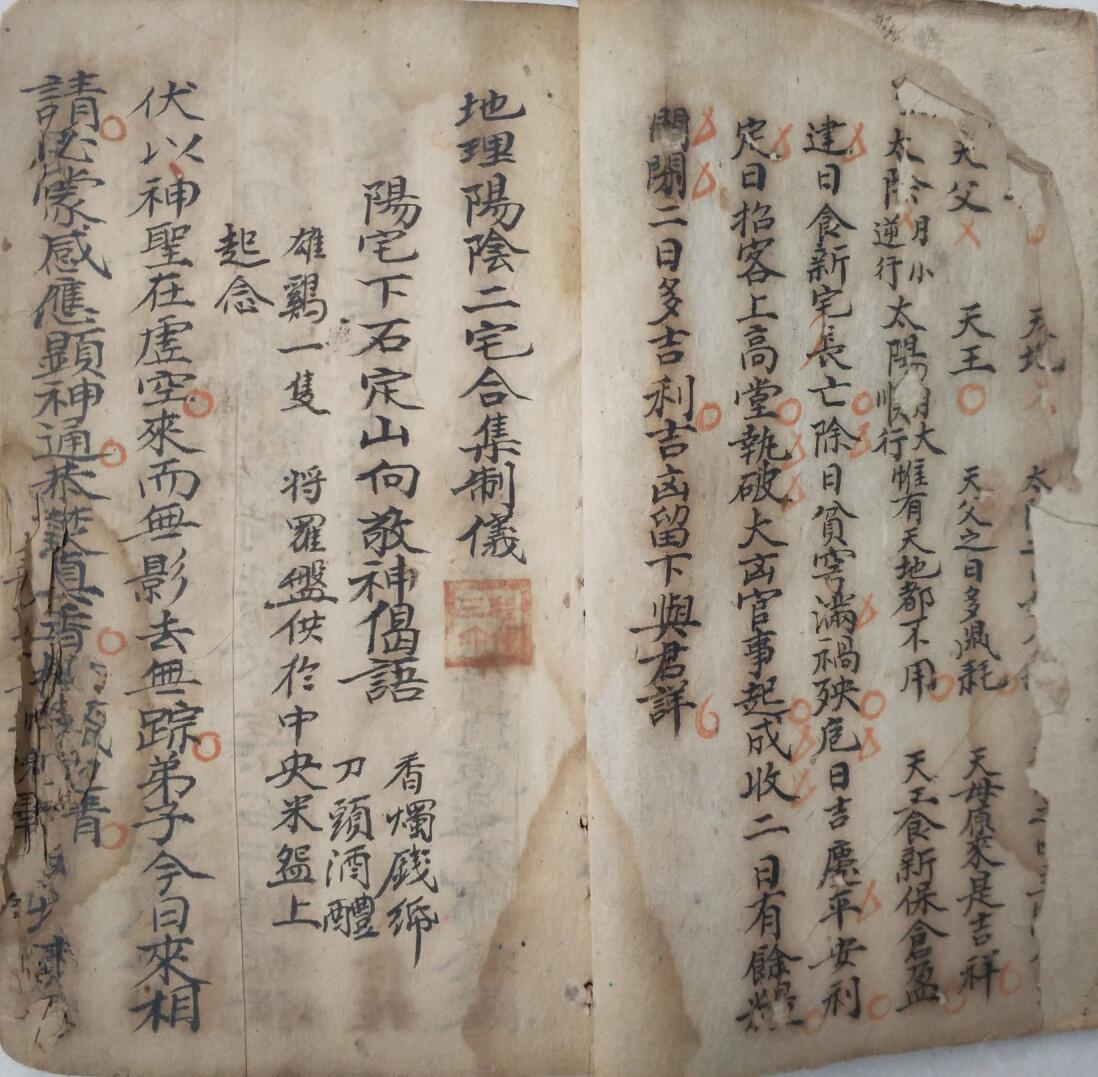 天地 太
天父 天王 天父之日多鼎耗 天母原來是吉祥
太陰月小逆行 太陽月大順行 惟有天地都不用 天王食新保倉盈
建日食新宅長亡除日貧窮滿禍殃危日吉慶平安利
定日招客上高堂執破大凶官事起成收二日有餘糧
開閉二日多吉利吉凶留下與君詳
地理陽陰二宅合集制儀
陽宅下石定山向敬神偈語
香燭錢紙
刀頭酒醴
雄鷄一隻 将羅盤供於中央米盌上
起念
伏以神聖在虛空來而無影去無踪弟子今日來相
請必蒙感應顯神通恭焚真香